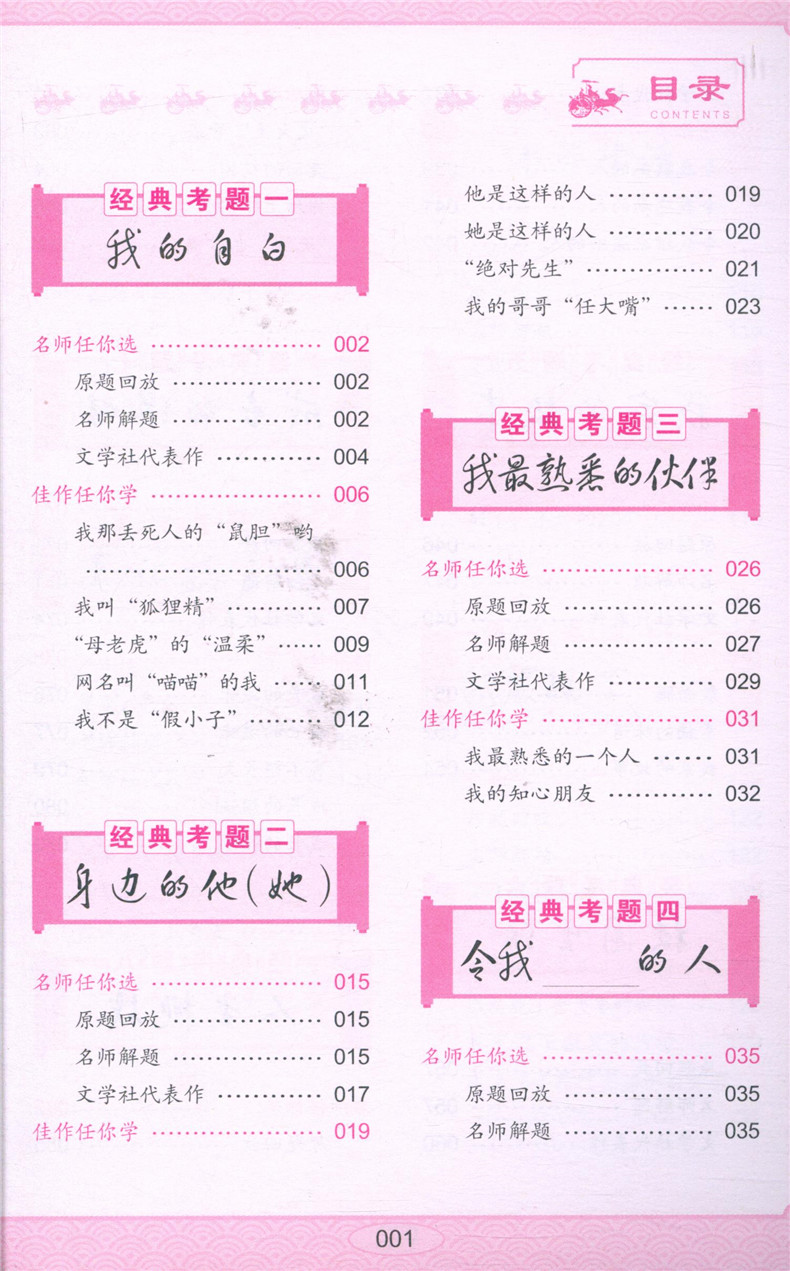 目录
CONTENTS
经典考题一
我的自白
名师任你选 ………………… 002
原题回放 ……………… 002
名师解题 ……………… 002
文学社代表作 ………… 004
佳作任你学 ………………… 006
我那丢死人的“鼠胆”哟
……………………… 006
我叫“狐狸精” ………… 007
“母老虎”的“温柔” …… 009
网名叫“喵喵”的我 …… 011
我不是“假小子” ……… 012
经典考题二
身边的他(她)
名师任你选 ………………… 015
原题回放 ……………… 015
名师解题 ……………… 015
文学社代表作 ………… 017
佳作任你学 ………………… 019
他是这样的人 ………… 019
她是这样的人 ………… 020
“绝对先生” …………… 021
我的哥哥“任大嘴” …… 023
经典考题三
我最熟悉的伙伴
名师任你选 ………………… 026
原题回放 ……………… 026
名师解题 ……………… 027
文学社代表作 ………… 029
佳作任你学 ………………… 031
我最熟悉的一个人 …… 031
我的知心朋友 ………… 032
经典考题四
令我______的人
名师任你选 ………………… 035
原题回放 ……………… 035
名师解题 ……………… 035
001